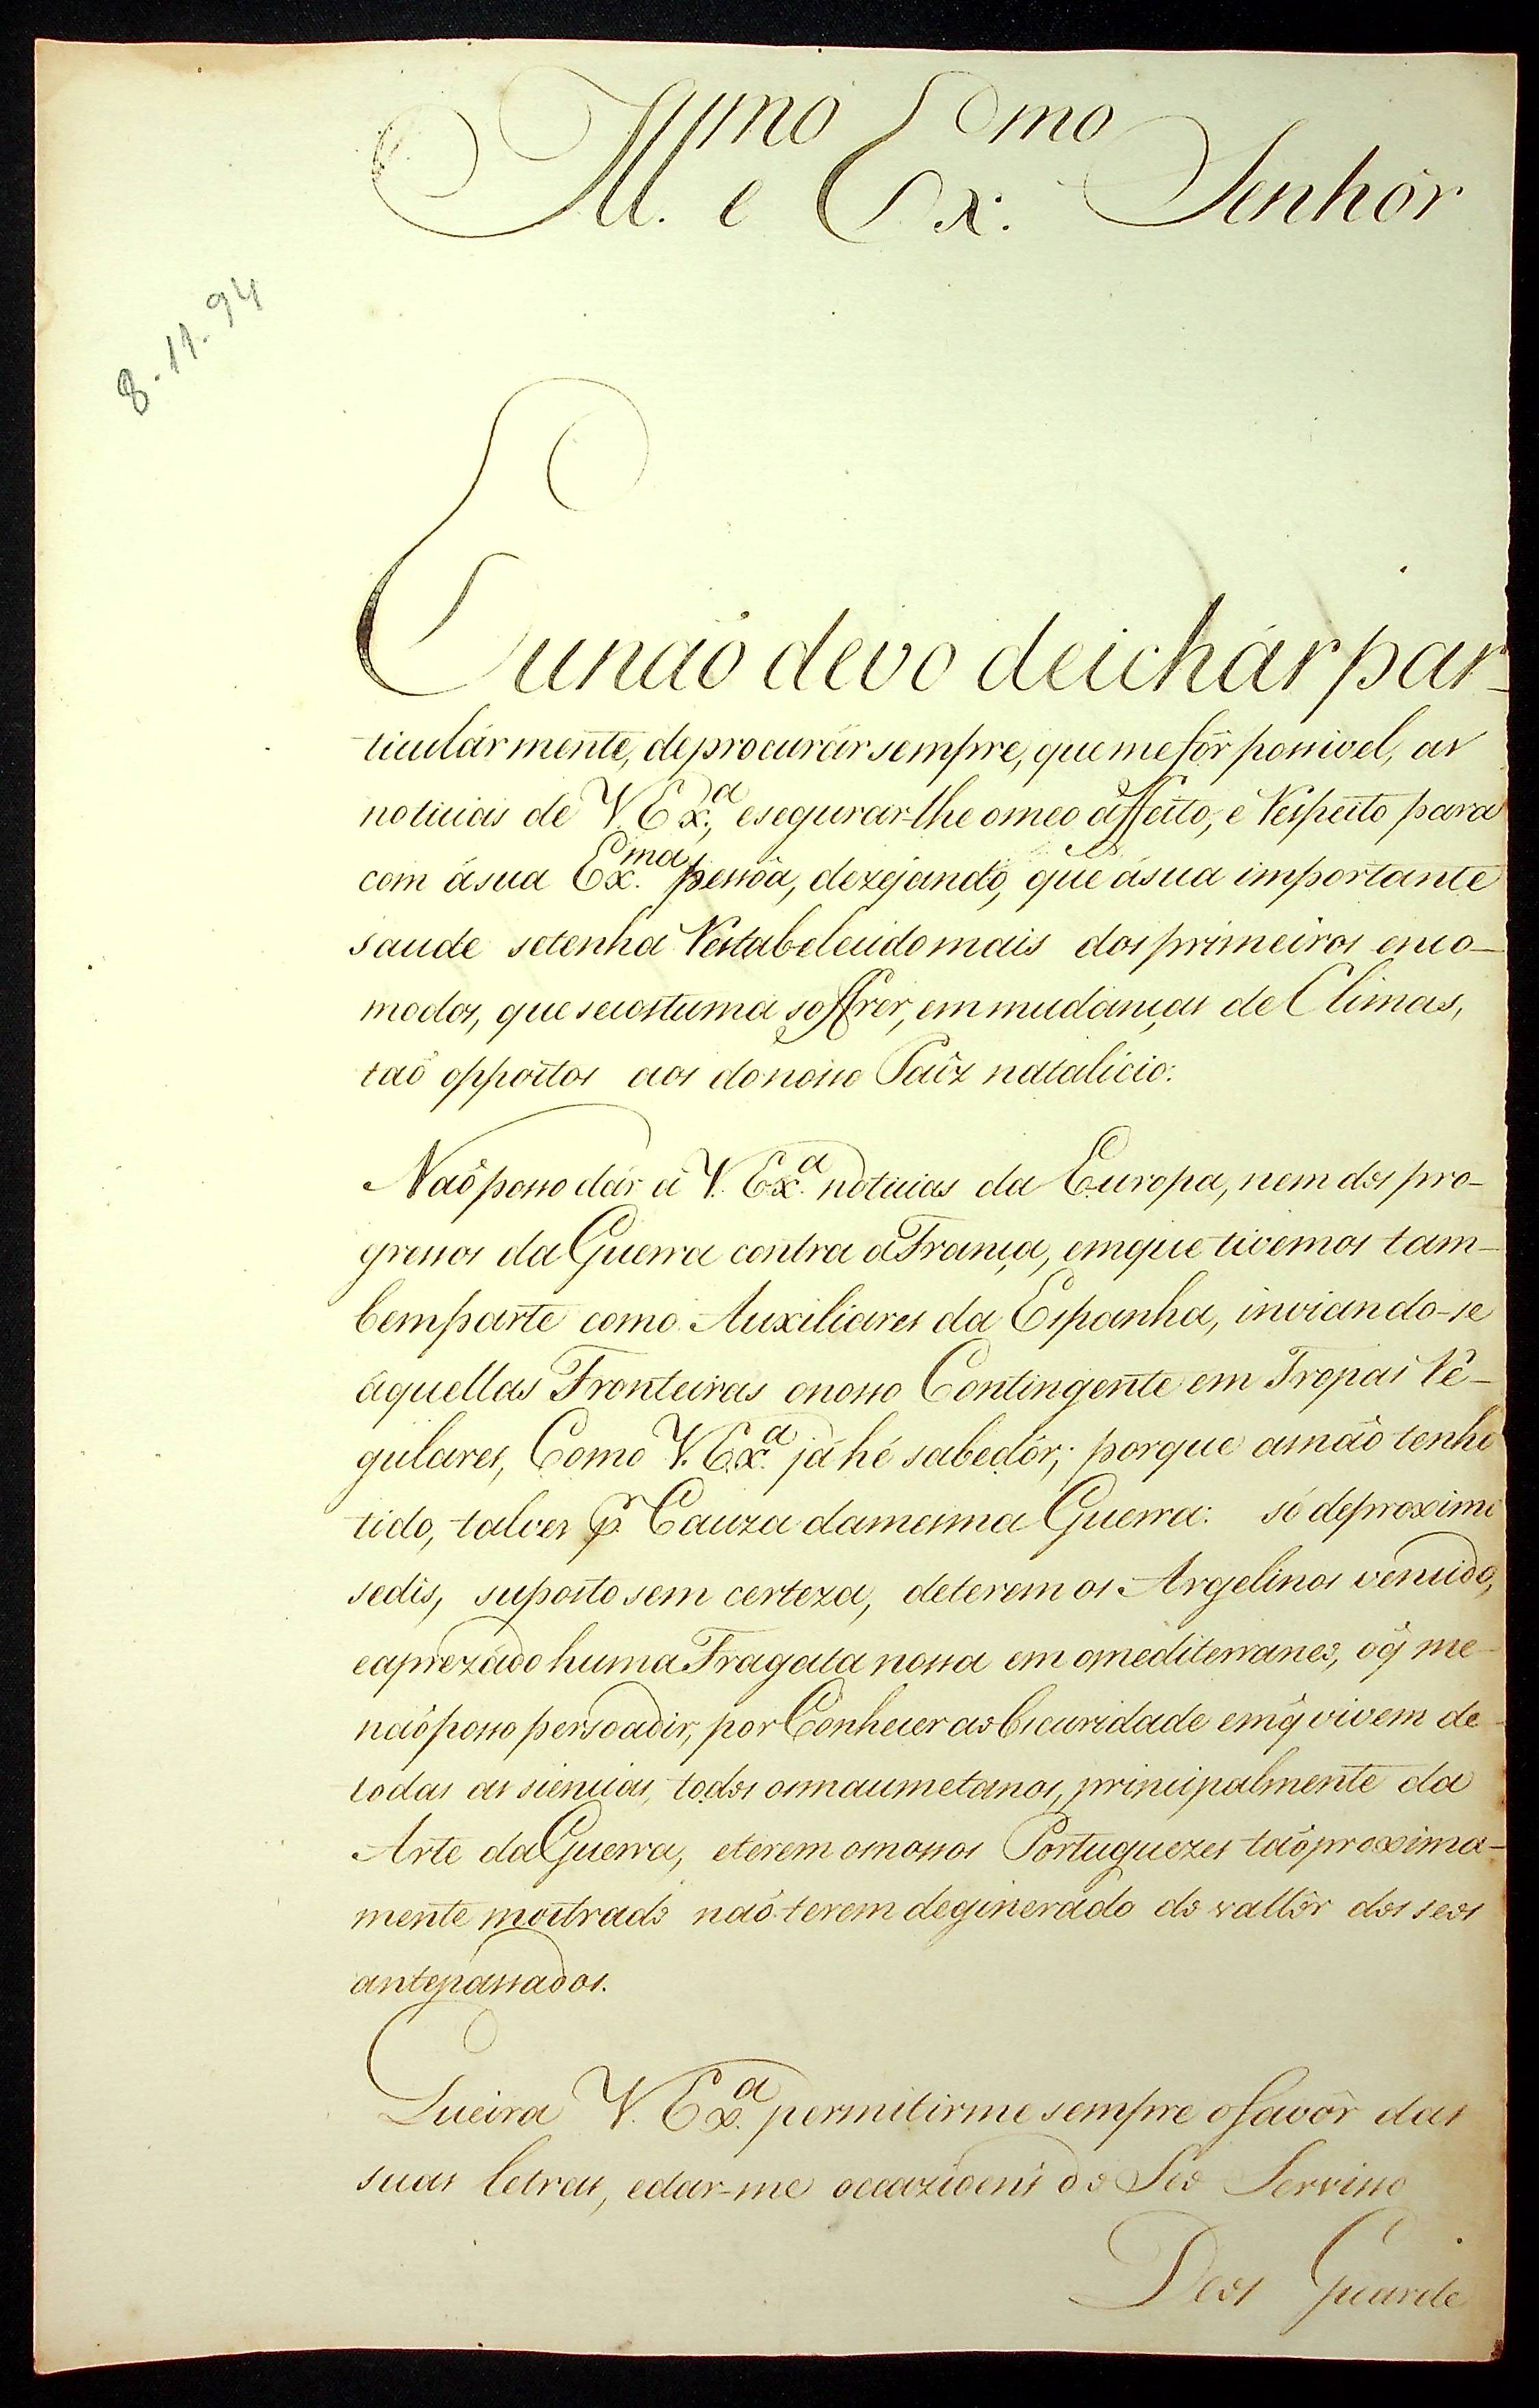 Ill.mo e Ex.mo Senhôr
8-11-94
Eu naõ devo deichár par-
ticulármente, de procurár sempre, que me fôr possivel, as
noticias de V. Ex.a, e segurar-lhe o meo affeito, e Respeito para
com á sua Ex.ma pessôa, dezejando, que á sua importante
saude se tenha Restabelecido mais dos primeiros enco-
modos, que se costuma soffrer, em mudanças de Climas,
taõ oppostos aos do nosso Paîz natalicio:
Naõ posso dár á V. Ex.a noticias da Europa, nem dos pro-
gressos da Guerra contra a França, em que tivemos tam-
bem parte como Auxiliares da Espanha, inviando-se
áquellas Fronteiras o nosso Contingente em Tropas Re-
gulares, Como V. Ex.a já hé sabedôr; porque as naõ tenho
tido, talves p.r Cauza da mesma Guerra: só de proximo
se dis, suposto sem certeza, de terem os Argelinos vencido,
e aprezádo huma Fragata nossa em o mediterraneo, o q̃ me
naõ posso persoadir, por Conhecer a obscuridade em q̃ vivem de
todas as siencias, todos os maumetanos, principalmente da
Arte da Guerra, e terem os nossos Portuguezes taõ proxima-
mente mostrado naõ terem deginerádo do vallôr dos seos
antepássados.
Queira V. Ex.a permitirme sempre o favôr das
suas letras, e dar-me occazioens do Seo Servisso
Deos Guarde